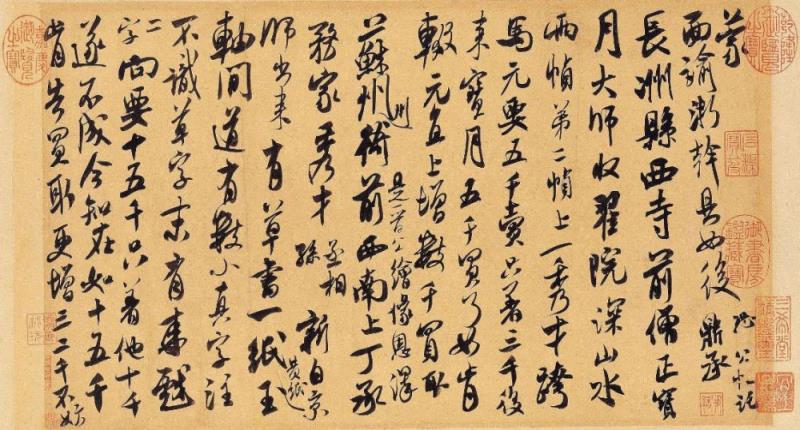 蒙
面諭浙幹具如後 鼎承
恐公不記
長洲縣西寺前僧正寶
月大師收翟院深山水
兩幀第二幀上一秀才跨
馬元要五千賣只著三千後
來寶月五千買了如肯
輟元直上增數千買取
是晉公繪像恩澤
蘇州州衙前西南上丁承
務家秀才丞相孫新自京
師出來有草書一紙黃紙玉
軸間道有數小真字注
不識草字末有來戲
二字向要十五千只著他十千
遂不成今知在如十五千
肯告買取更增三二千不妨